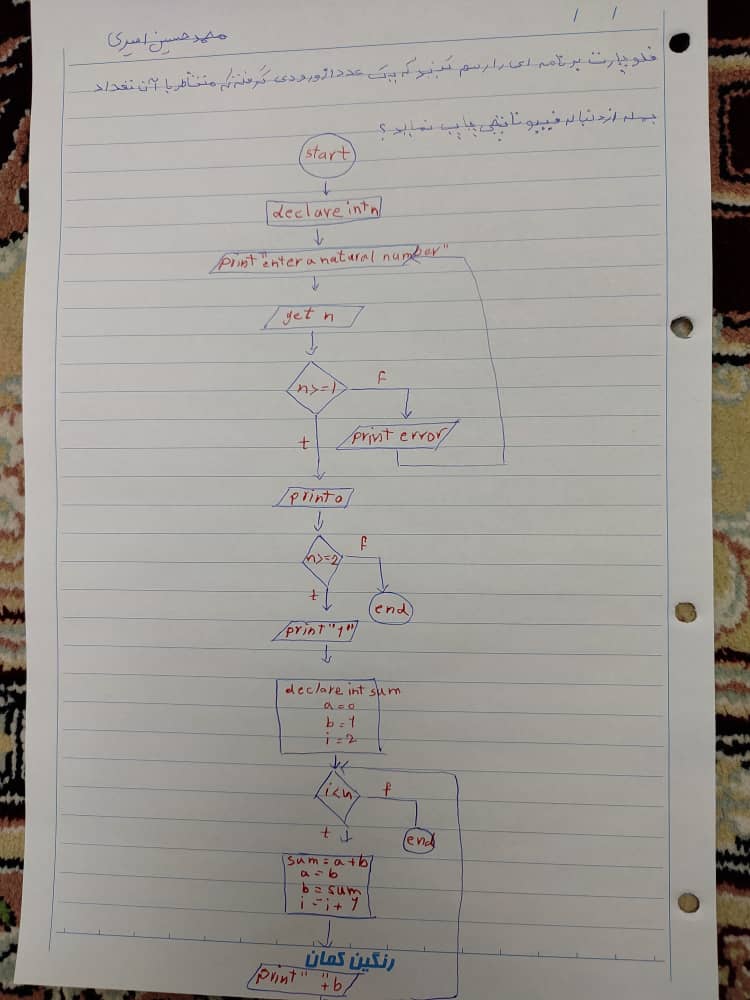 / /
محمدحسین امیری
فلوچارت برنامه ای را رسم کنید که یک عدد از ورودی گرفته که متناظر با آن تعداد
جمله از دنباله فیبوناچی چاپ نماید؟
start
declare int n
print "enter a natural number"
get n
n>=1
F
t
print error
print 0
n>=2
F
t
end
print "1"
declare int sum
a=0
b=1
i=2
i<n
f
t
end
sum=a+b
a=b
b=sum
i=i+1
رنگین کمان
print" "+b